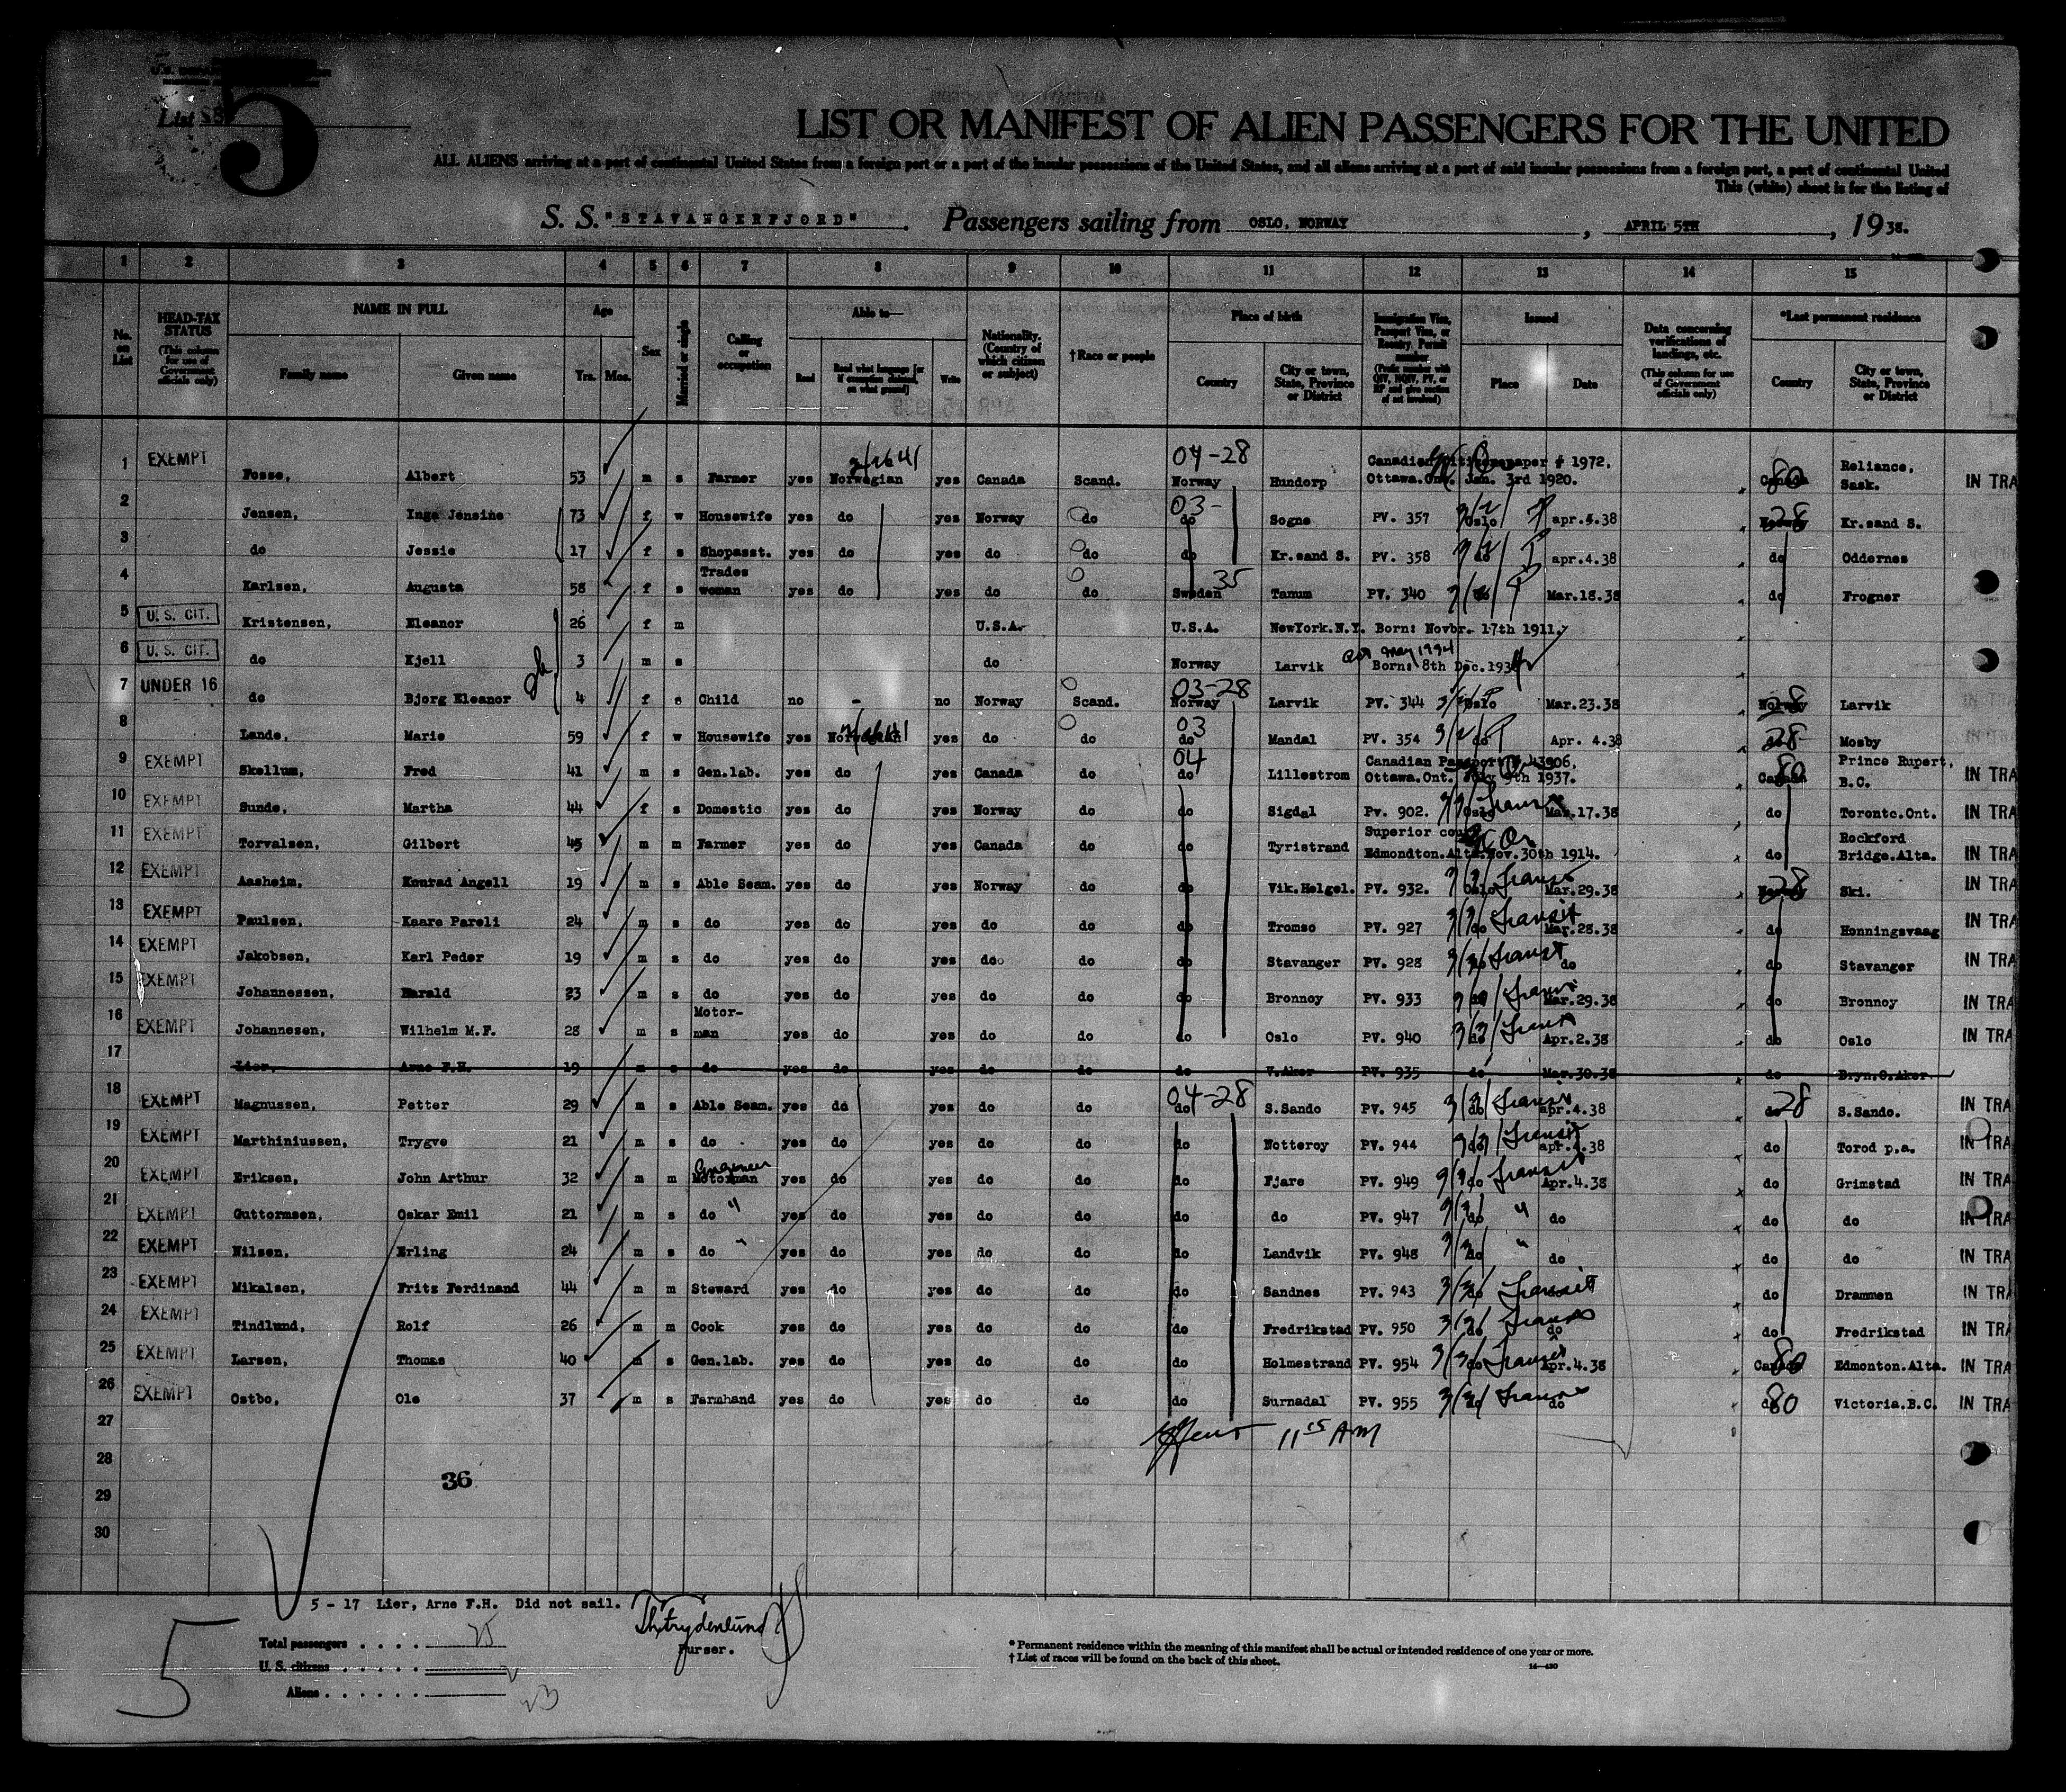 List
5
LIST OR MANIFEST OF ALIEN PASSENGERS FOR THE UNITED
ALL ALIENS arriving at a port of continental United States from a foreign port or a port of the insular possessions of the United States, and all aliens arriving at a port of said insular possessions from a foreign port, a port of continental United
This (white) sheet is for the listing of
S. S. "STAVANGERFJORD". Passengers sailing from OSLO, NORWAY, APRIL 5TH, 1938.
1 2 3 4 5 6 7 8 9 10 11 12 13 14 15
No. on List
HEAD-TAX STATUS (This column for use of Government officials only)
NAME IN FULL Family name Given name
Age Yrs. Mos.
Sex
Married or single
Calling or occupation
Able to— Read Read what language [or if exemption claimed, on what ground] Write
Nationality. (Country of which citizen or subject)
†Race or people
Place of birth Country City or town, State, Province or District
Immigration Visa, Passport Visa, or Reentry Permit number (Prefix number with QIV, NQIV, PV, or RP and give section of act involved)
Issued Place Date
Data concerning verifications of landings, etc. (This column for use of Government officials only)
*Last permanent residence Country City or town, State, Province or District
1 EXEMPT Fosse, Albert 53 m s Farmer yes Norwegian yes Canada Scand. 04-28 Norway Hundorp Canadian # 1972. Ottawa.Ont. Jan. 3rd 1920. Canada 80 Reliance, Sask. IN TRA
2 Jensen, Inga Jensine 73 f w Housewife yes do yes Norway do 03- do Sogne PV. 357 Oslo apr.5.38 Norway 28 Kr.sand S.
3 do Jessie 17 f s Shopasst. yes do yes do do do Kr.sand S. PV. 358 do apr.4.38 do Oddernes
4 Karlsen, Augusta 58 f s Trades woman yes do yes do do Sweden 35 Tanum PV. 340 do Mar.18.38 do Frogner
5 U. S. CIT. Kristensen, Eleanor 26 f m U.S.A. U.S.A. NewYork.N.Y. Born: Novbr. 17th 1911.
6 U. S. CIT. do Kjell 3 m s do Norway Larvik Born: 8th Dec.1934
7 UNDER 16 do Bjorg Eleanor 4 f s Child no - no Norway Scand. 03-28 Norway Larvik PV. 344 Oslo Mar.23.38 Norway 28 Larvik
8 Lande, Marie 59 f w Housewife yes Norwegian yes do do 03 do Mandal PV. 354 do Apr. 4.38 do 28 Mosby
9 EXEMPT Skellum, Fred 41 m s Gen.lab. yes do yes Canada do 04 do Lillestrom Canadian Passport 43906, Ottawa.Ont. July 9th 1937. Canada 80 Prince Rupert, B.C. IN TRA
10 EXEMPT Sunde, Martha 44 f s Domestic yes do yes Norway do do Sigdal Pv. 902. Oslo Mar.17.38 do Toronto.Ont. IN TRA
11 EXEMPT Torvalsen, Gilbert 45 m m Farmer yes do yes Canada do do Tyristrand Superior court Edmondton.Alta.Nov.30th 1914. do Rockford Bridge.Alta. IN TRA
12 EXEMPT Aasheim, Konrad Angell 19 m s Able Seam. yes do yes Norway do do Vik.Helgel. PV. 932. Oslo Mar.29.38 Norway 28 Ski. IN TRA
13 EXEMPT Paulsen, Kaare Pareli 24 m s do yes do yes do do do Tromso PV. 927 do Transit Mar.28.38 do Honningsvaag IN TRA
14 EXEMPT Jakobsen, Karl Peder 19 m s do yes do yes do do do Stavanger PV. 928 do Transit do do Stavanger IN TRA
15 EXEMPT Johannessen, Harald 23 m s do yes do yes do do do Bronnoy PV. 933 do Mar.29.38 do Bronnoy IN TRA
16 EXEMPT Johannesen, Wilhelm M.F. 28 m s Motor- man yes do yes do do do Oslo PV. 940 do Apr.2.38 do Oslo IN TRA
17 Lier, Arne F.H. 19 m s do yes do yes do do do V.Aker PV. 935 do Mar.30.38 do Bryn.O.Aker.
18 EXEMPT Magnussen, Petter 29 m s Able Seam. yes do yes do do 04-28 do S.Sando PV. 945 do apr.4.38 do 28 S.Sando. IN TRA
19 EXEMPT Marthiniussen, Trygve 21 m s do yes do yes do do do Notteroy PV. 944 do Transit apr.4.38 do Torod p.a. IN TRA
20 EXEMPT Eriksen, John Arthur 32 m m Motorman Engineer yes do yes do do do Fjare PV. 949 do Transit Apr.4.38 do Grimstad IN TRA
21 EXEMPT Guttormsen, Oskar Emil 21 m s do " yes do yes do do do do PV. 947 do " do do do IN TRA
22 EXEMPT Nilsen, Erling 24 m s do " yes do yes do do do Landvik PV. 948 do " do do do IN TRA
23 EXEMPT Mikalsen, Fritz Ferdinand 44 m m Steward yes do yes do do do Sandnes PV. 943 do Transit do do Drammen IN TRA
24 EXEMPT Tindlund, Rolf 26 m m Cook yes do yes do do do Fredrikstad PV. 950 do do do Fredrikstad IN TRA
25 EXEMPT Larsen, Thomas 40 m s Gen.lab. yes do yes do do do Holmestrand PV. 954 do Transit Apr.4.38 Canada 80 Edmonton.Alta. IN TRA
26 EXEMPT Ostbo, Ole 37 m s Farmhand yes do yes do do do Surnadal PV. 955 do do do 80 Victoria.B.C. IN TRA
27 11 15 AM
28
36
29
30
5 - 17 Lier, Arne F.H. Did not sail.
Purser.
5
Total passengers . . . . 25
U. S. citizens . . . . .
Aliens . . . . . . 23
* Permanent residence within the meaning of this manifest shall be actual or intended residence of one year or more.
† List of races will be found on the back of this sheet.
14—430